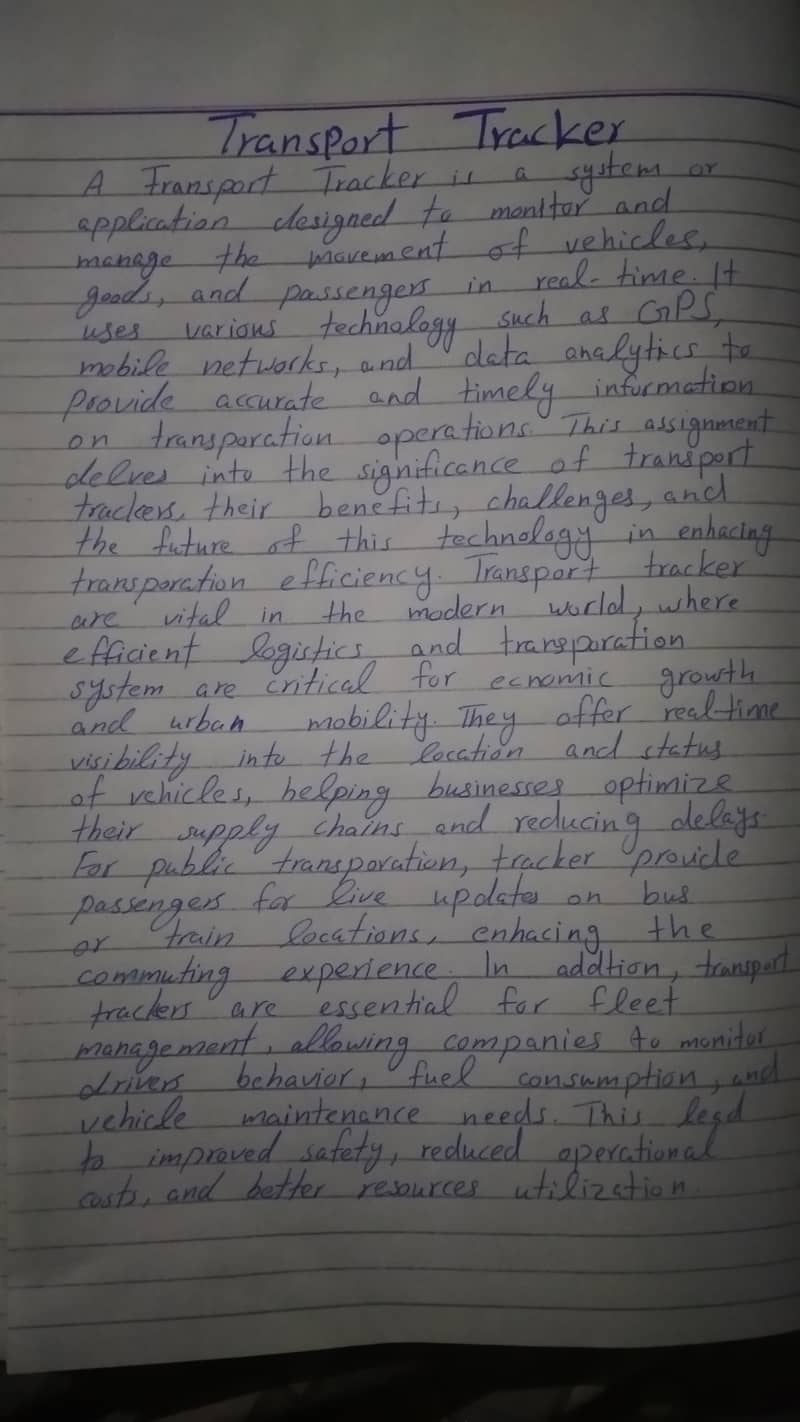 Transport Tracker
A Transport Tracker is a system or
application designed to monitor and
manage the movement of vehicles,
goods, and passengers in real-time. It
uses various technology such as GPS,
mobile networks, and data analytics to
provide accurate and timely information
on transporation operations. This assignment
delves into the significance of transport
trackers, their benefits, challenges, and
the future of this technology in enhacing
transporation efficiency. Transport tracker
are vital in the modern world, where
efficient logistics and transporation
system are critical for ecnomic growth
and urban mobility. They offer real-time
visibility into the location and status
of vehicles, helping businesses optimize
their supply chains and reducing delays.
For public transporation, tracker provide
passengers for live updates on bus
or train locations, enhacing the
commuting experience. In addtion, transport
trackers are essential for fleet
management, allowing companies to monitor
drivers behavior, fuel consumption, and
vehicle maintenance needs. This lead
to improved safety, reduced operational
costs, and better resources utilization.